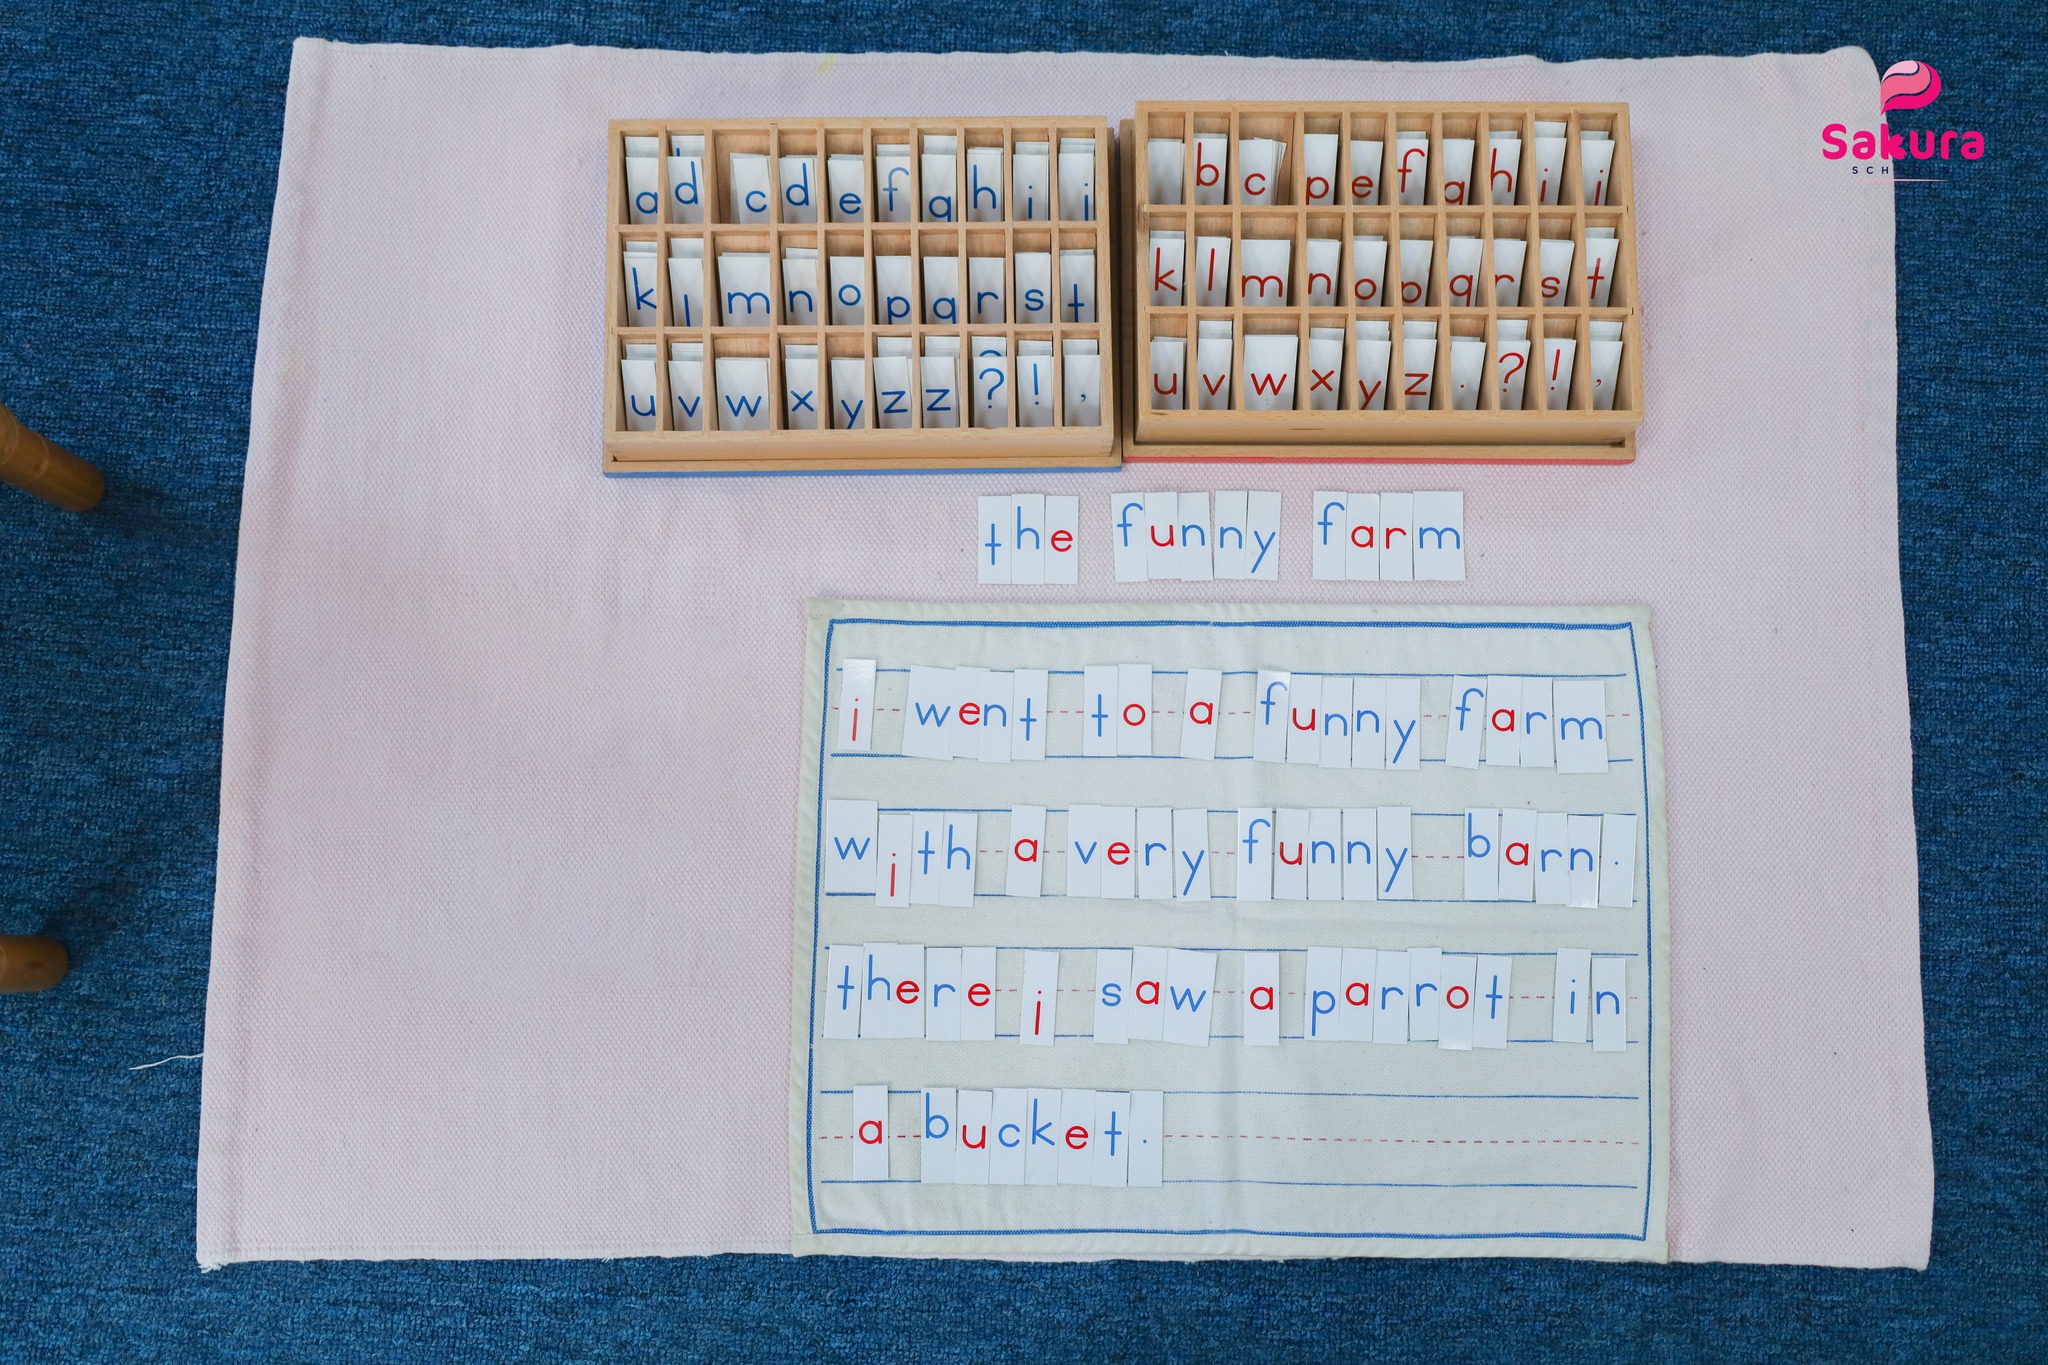 a d c d e f g h i j
k l m n o p q r s t
u v w x y z z ? ! ,
b c p e f g h i j
k l m n o p q r s t
u v w x y z . ? ! ,
Sakura
the funny farm
i went to a funny farm
with a very funny barn.
there i saw a parrot in
a bucket.